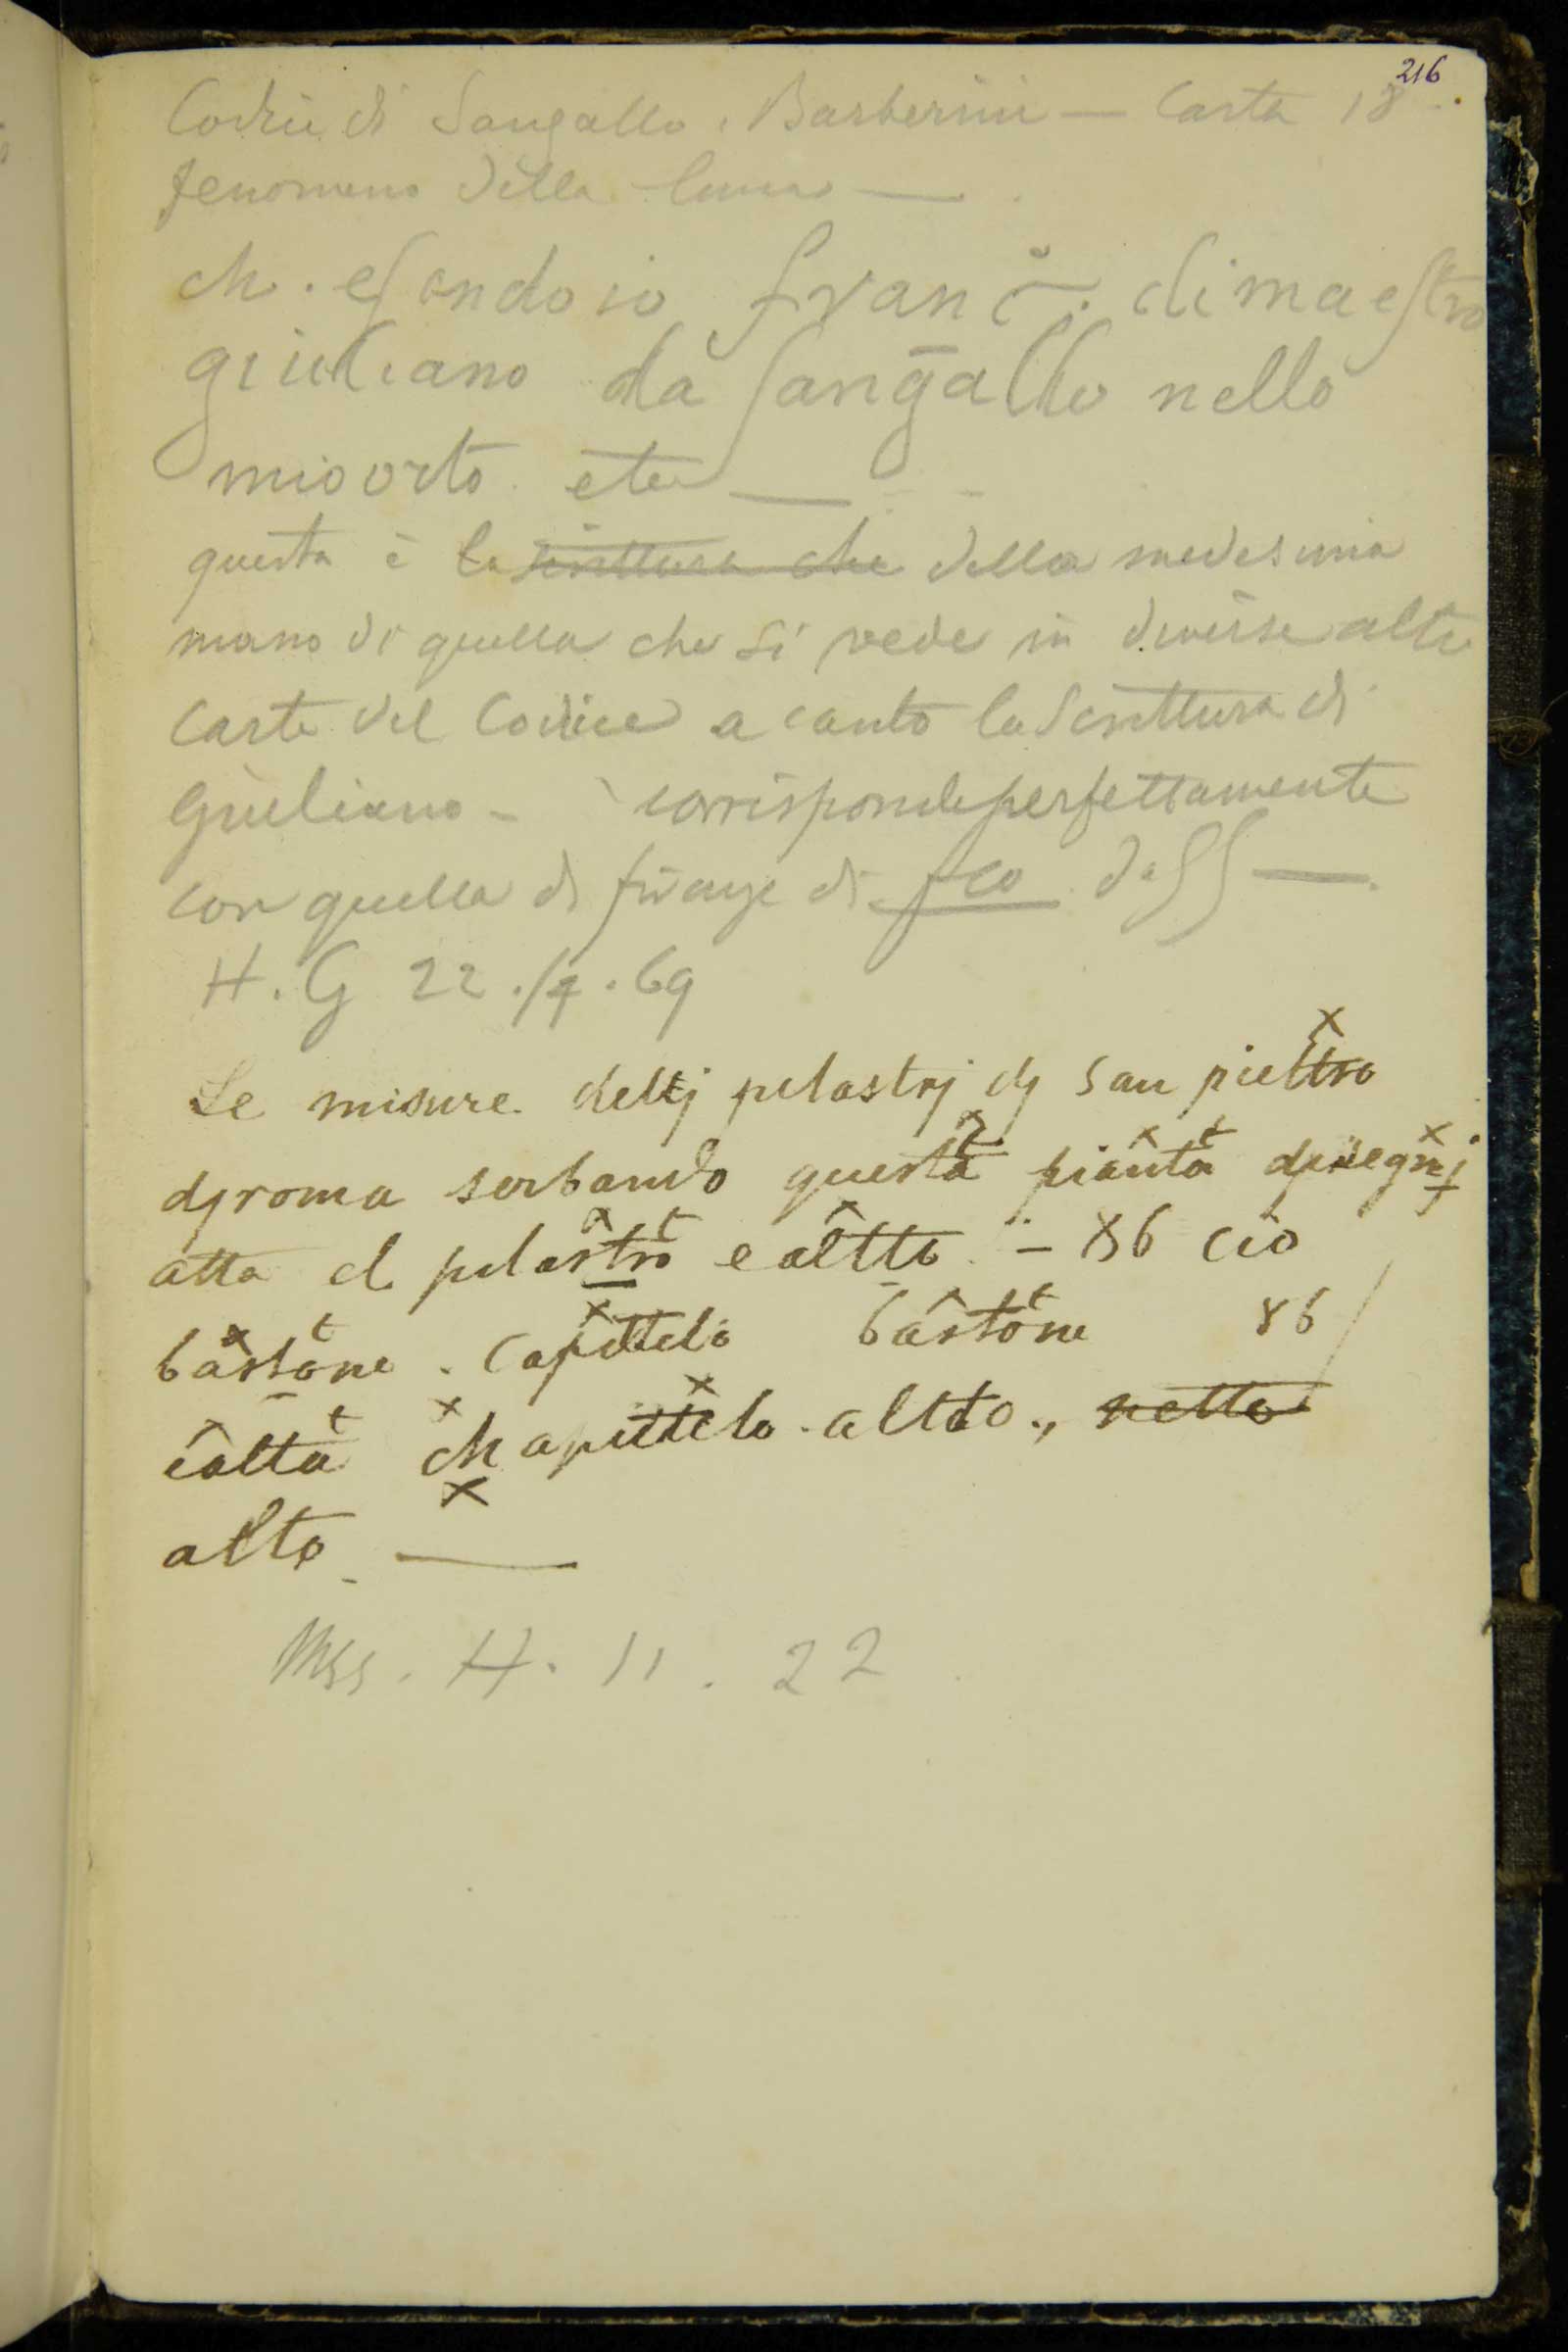 216
Codice di Sangallo. Barberini — Carta 18.
fenomeno della luna —
ch. esendo io franc̃. di maestro
giuliano da sangallo nello
mio orto etc —
questa è la scrittura che della medesima
mano di quella che si vede in diverse altre
carte del Codice accanto la Scrittura di
Giuliano - corrisponde perfettamente
con quella di firenze di fco da SG —.
H. G 22./4.69
Le misure delj pilastrj dj san piettro
djroma serbando questa pianta
atta el pilastro e altto - 86 cio
bastone. Capittelo bastone 86/
ealta chapittelo. altto., netto
alto —
Mss. H. 11. 22